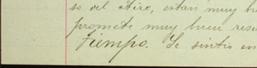 se del Aire, están muy bu
promete muy buen resu
tiempo. Se sintió en